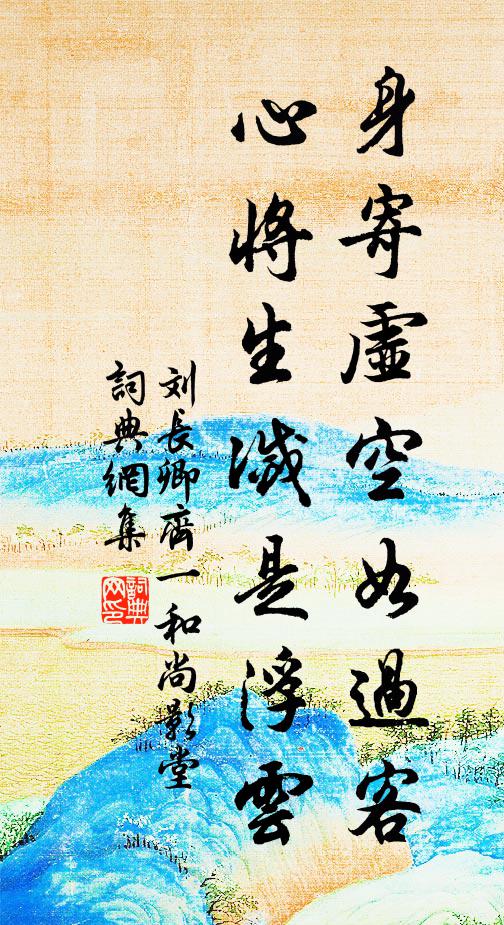 身寄虛空如過客
心將生滅是浮雲
刘長卿齊一和尚影堂
詞典網集